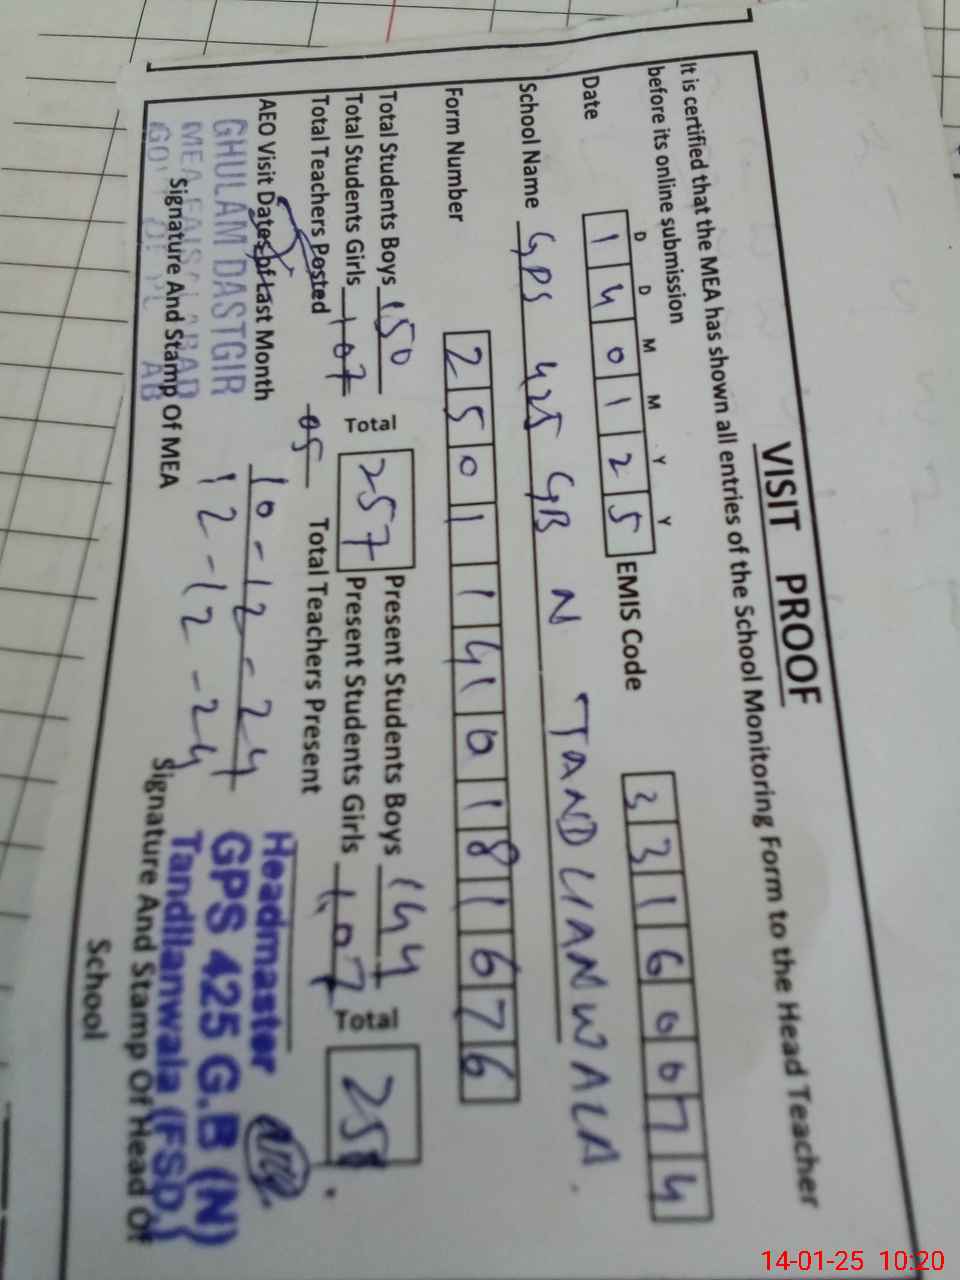 VISIT PROOF
It is certified that the MEA has shown all entries of the School Monitoring Form to the Head Teacher
before its online submission
D D M M Y Y
Date 1 4 0 1 2 5 EMIS Code 3 3 1 6 0 0 7 4
School Name GPS 425 GB N TANDLIANWALA.
Form Number 2 5 0 1 1 4 1 0 1 8 1 6 7 6
Total Students Boys 150 Total 257 Present Students Boys 144 Total
Total Students Girls 107 Present Students Girls 107
Total Teachers Posted 05 Total Teachers Present
AEO Visit Dates of Last Month 10-12-24
12-12-24
GHULAM DASTGIR
MEA FAISALABAD
Signature And Stamp Of MEA
Headmaster
GPS 425 G.B (N)
Tandlianwala (FSD.)
Signature And Stamp Of Head Of
School
14-01-25 10:20